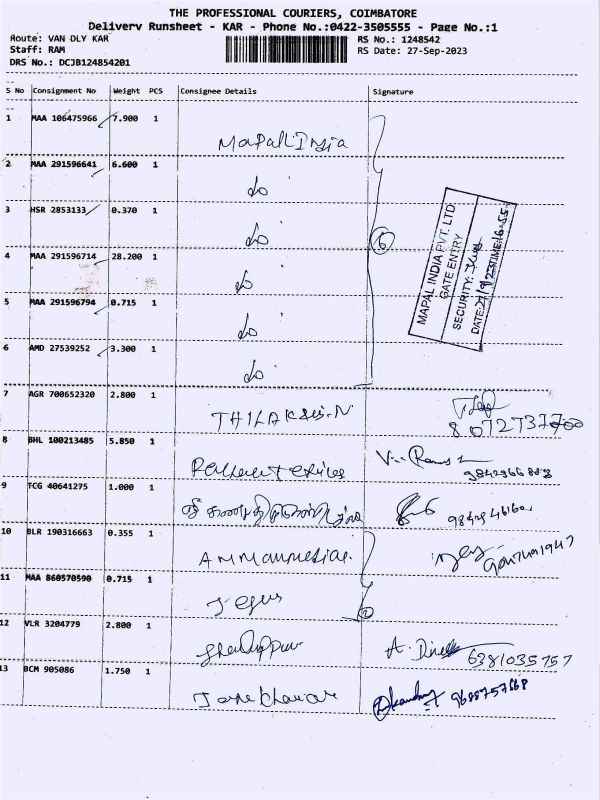 THE PROFESSIONAL COURIERS, COIMBATORE
Delivery Runsheet - KAR - Phone No.:0422-3505555 - Page No.:1
Route: VAN DLY KAR
RS No.: 1248542
Staff: RAM
RS Date: 27-Sep-2023
DRS No.: DCJB124854201
S No Consignment No Weight PCS Consignee Details Signature
1 MAA 106475966 7.900 1 Mapal India
2 MAA 291596641 6.600 1 do
3 HSR 2853133 0.370 1 do
4 MAA 291596714 28.200 1 do
5 MAA 291596794 0.715 1 do
6 AMD 27539252 3.300 1 do
6
MAPAL INDIA PVT. LTD
GATE ENTRY
SECURITY:
DATE: TIME: 16:55
7 AGR 700652320 2.800 1 THILAK
8 BHL 100213485 5.850 1
9 TCG 40641275 1.000 1
10 BLR 190316663 0.355 1
11 MAA 860570590 0.715 1
2
12 VLR 3204779 2.800 1 6381035757
13 BCM 905086 1.750 1 9688757668